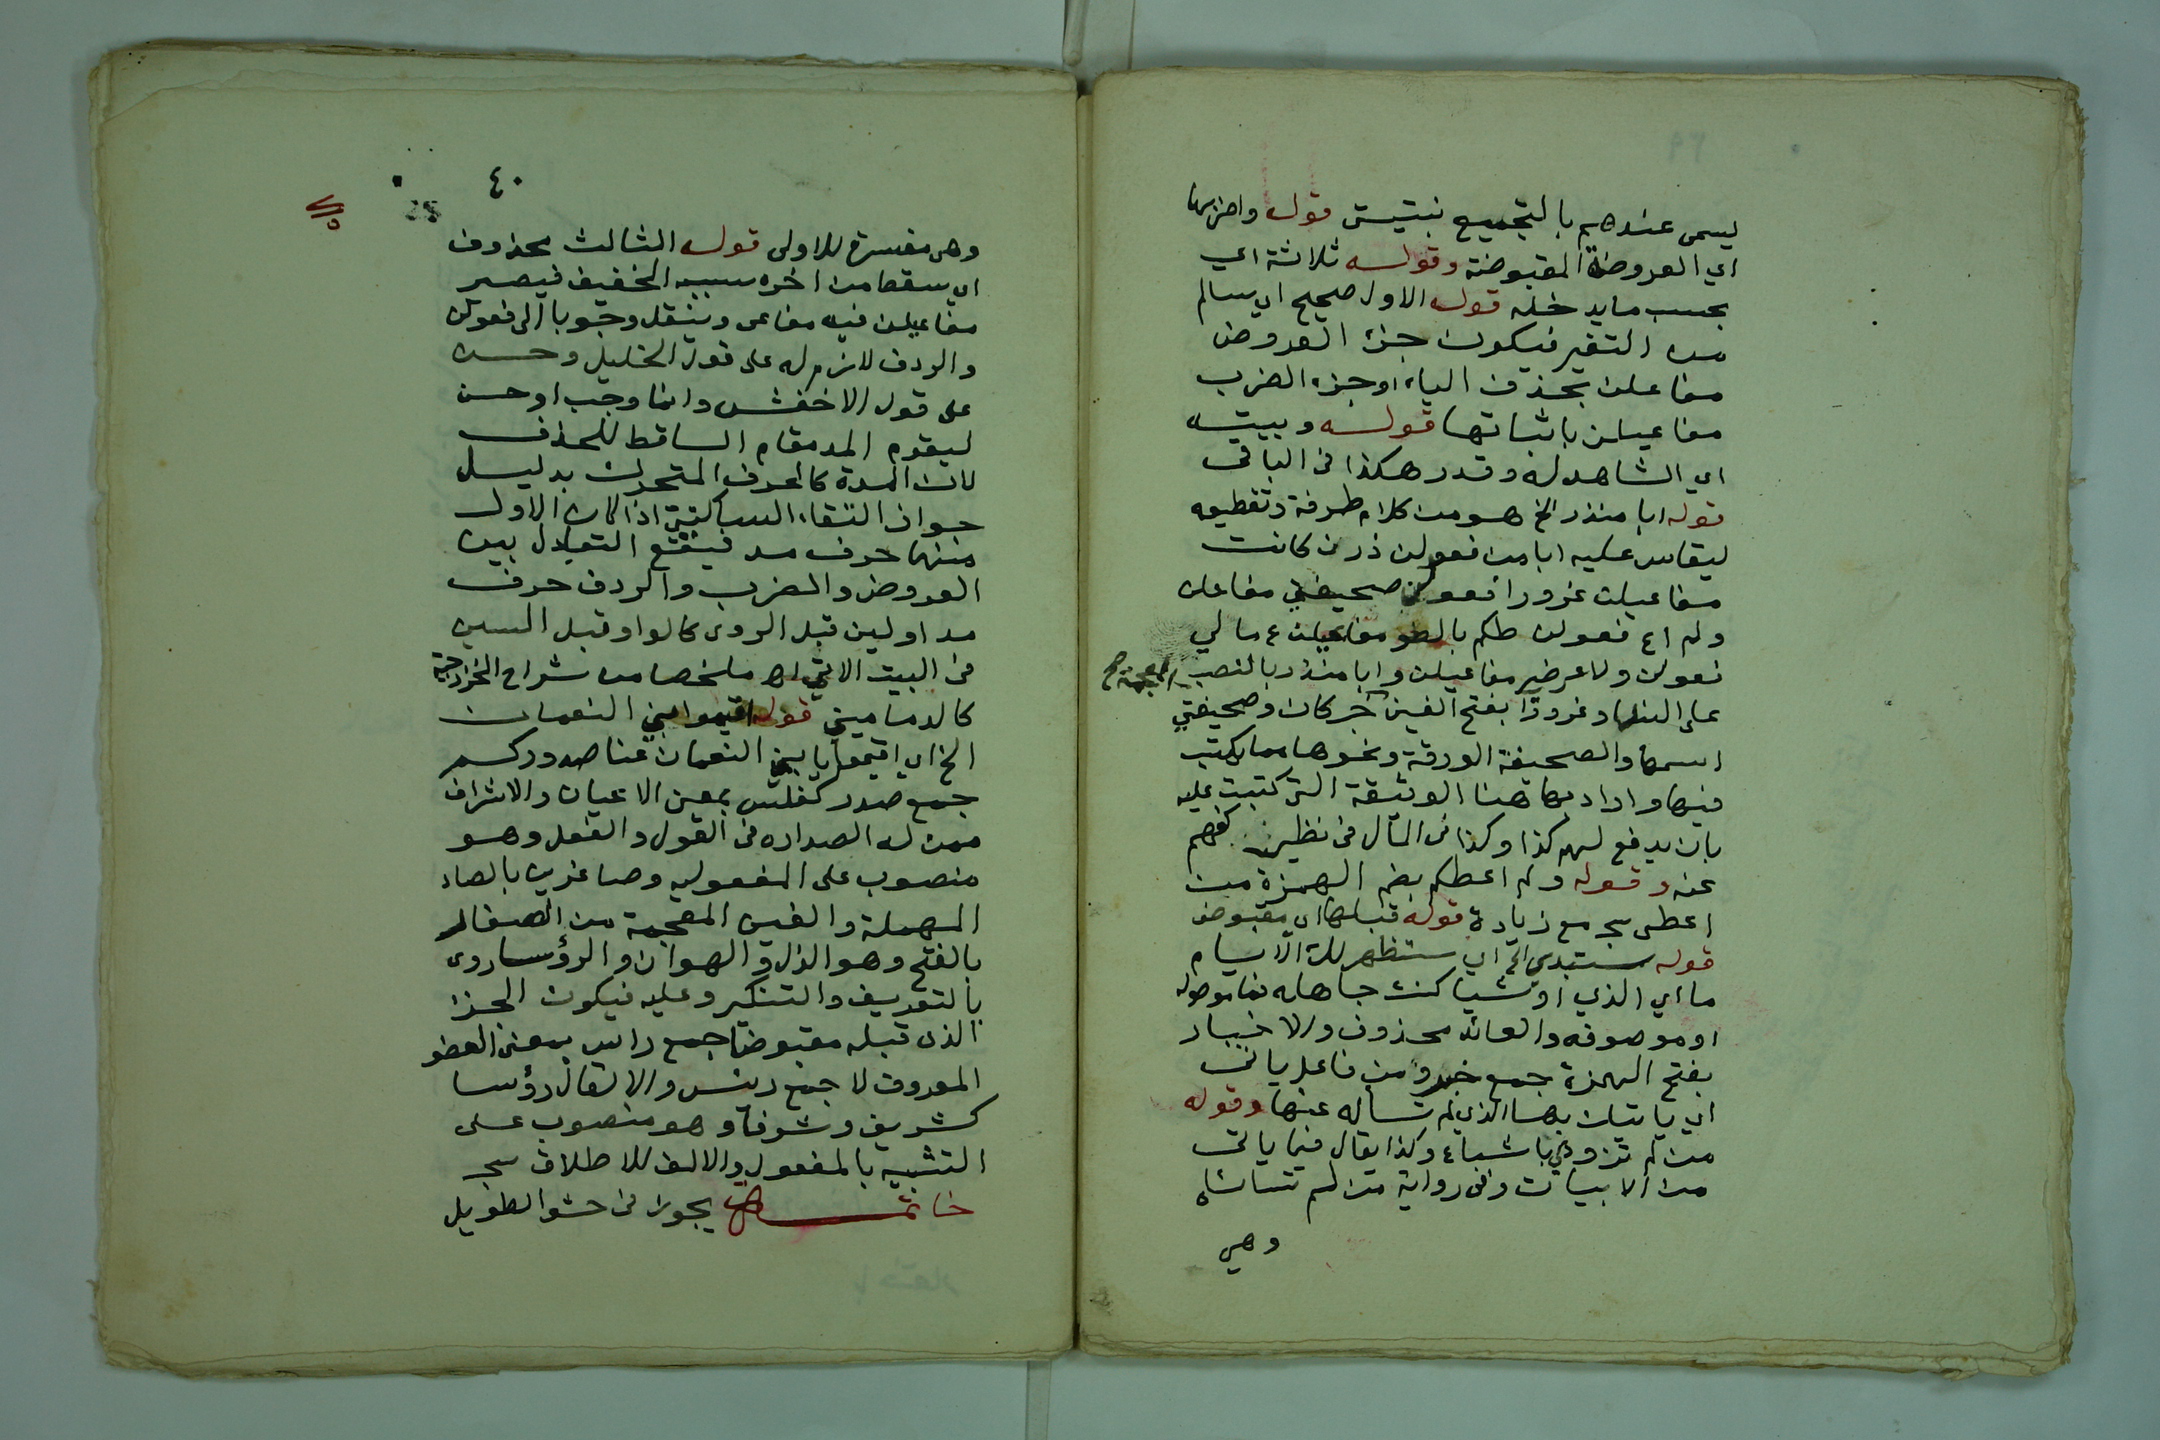 يسمى عندهم بالتجميع نبتيتس قوله واضربها
اي العروضة المقبوضة وقوله ثلاثة اي
بحسب ما يدخله قوله الاول صحيح اي سالم
من التغير فيكون جزء العروض
مفاعلن بحذف الياء وجزء الضرب
مفاعيلن باثباتها قوله وبيته
اي الشاهد له وقدر هكذا في الباقي
قوله ابا منذر الخ هو من كلام طرفة وتقطيعه
ليقاس عليه ابا من فعولن ذرن كانت
مفاعيلن غرورا فعولن صحيفتي مفاعلن
ولم اع فعولن طكم بالطو مفاعيلن ع ما لي
فعولن ولا عرضي مفاعيلن وابا منذر بالنصب
المعجمة صح
على الندا وغرورا بفتح الغين خبر كان وصحيفتي
اسمها والصحيفة الورقة ونحوها مما يكتب
فيها واراد بها هنا الوثيقة التي كتبت عليه
بان يدفع لهم كذا وكذا من المال في نظير كفهم
عنه وقوله ولم اعطكم بضم الهمزة من
اعطى سجـ مع زيادة قوله قبلها اي مقبوض
قوله ستبدي الخ اي ستظهر لك الايام
ما اي الذي او شيا كنت جاهله فما موصوله
او موصوفه والعائد محذوف والاخبار
بفتح الهمزة جمع خبر ومن فاعل ياتي
اي ياتيك بها الذي لم تساله عنها وقوله
من لم تزودي باشباع وكذا يقال فيما ياتي
من الابيات وفي رواية من لم تسائله
وهي
٤٠
28
وهي مفسرة للاولى قوله الثالث محذوف
اي سقط من اخره سببه الخفيف فيصير
مفاعيلن فيه مفاعي وينقل وجوبا الى فعولن
والردف لازم له على قول الخليل وحسن
على قول الاخفش وانما وجب او حسن
ليقوم المد مقام الساقط للحذف
لان المدة كالحرف المتحرك بدليل
جواز التقاء الساكنين اذا كان الاول
منهما حرف مد فيقع التعادل بين
العروض والضرب والردف حرف
مد او لين قبل الروي كالواو قبل السين
في البيت الاتي اهـ ملخصا من شراح الخزرجية
كالدماميني قوله اقيموا بني النعمان
الخ اي اقيموا يا بني النعمان عنا صدوركم
جمع صدر كفلس بمعنى الاعيان والاشراف
ممن له الصداره في القول والفعل وهو
منصوب على المفعوليه وصاغرين بالصاد
المهملة والغين المعجمة من الصغار
بالفتح وهو الذل والهوان والرؤسا روي
بالتعريف والتنكير وعليه فيكون الجزء
الذي قبله مقبوضا جمع راس بمعنى العضو
المعروف لا جمع ريس والا لقال رؤسا
كشريف وشرفا وهو منصوب على
التشبيه بالمفعول والالف للاطلاق سجـ
خاتمة يجوز في حشو الطويل